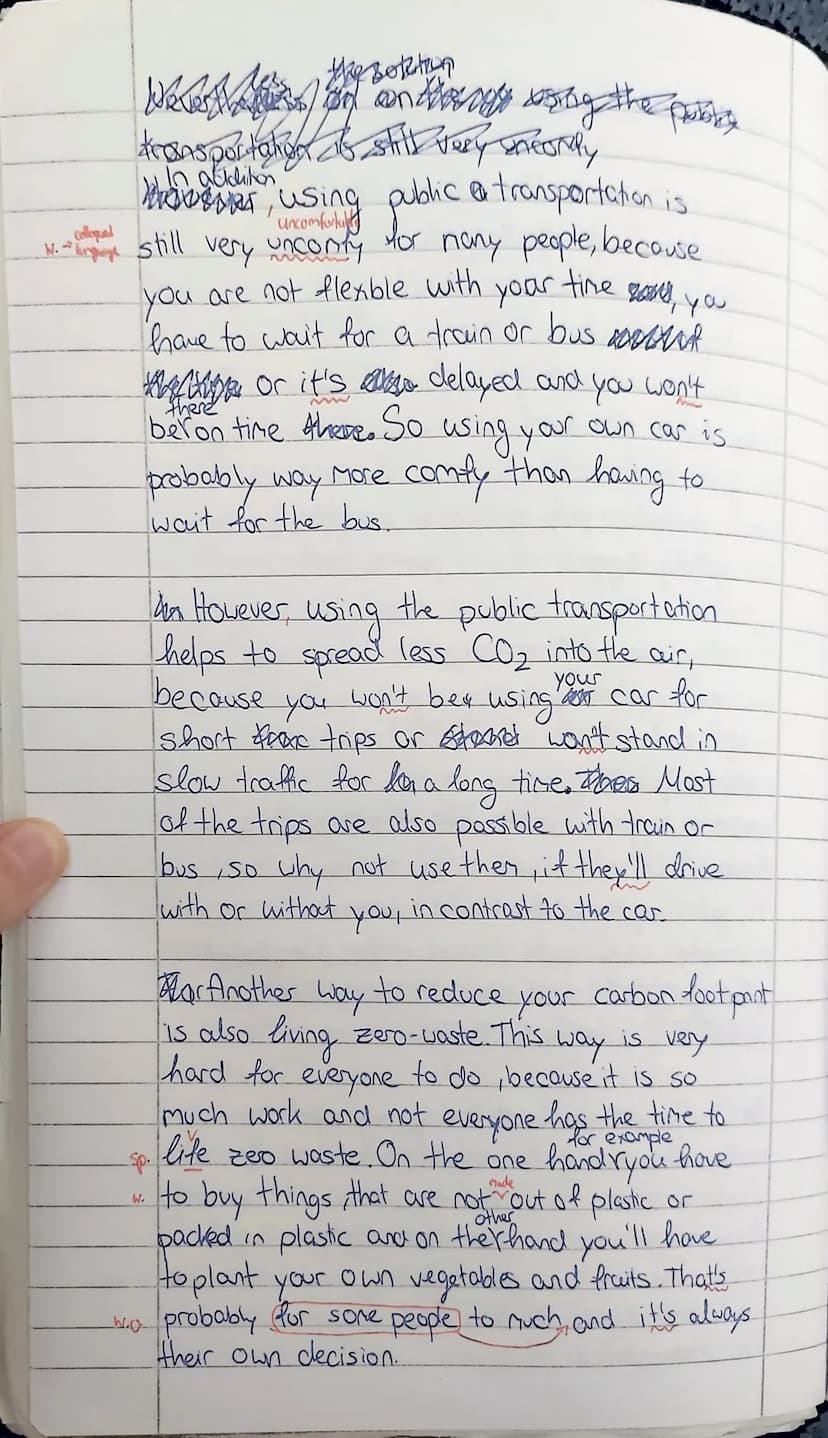 the solution
using the public
transportation is still very uncomfy
In addition
, using public transportation is
uncomfortable
colloquial
W. → language
still very uncomfy for many people, because
you are not flexible with your time, you
have to wait for a train or bus
or it's delayed and you won't
there
be on time there. So using your own car is
probably way more comfy than having to
wait for the bus.
In However, using the public transportation
helps to spread less CO2 into the air,
your
because you won't be using car for
short trips or won't stand in
slow traffic for a long time. Most
of the trips are also possible with train or
bus, so why not use them, if they'll drive
with or without you, in contrast to the car.
Another way to reduce your carbon footprint
is also living zero-waste. This way is very
hard for everyone to do, because it is so
much work and not everyone has the time to
for example
v
Sp. life zero waste. On the one hand you have
made
W. to buy things, that are not out of plastic or
other
packed in plastic and on the hand you'll have
to plant your own vegetables and fruits. That's
W.O. probably for some people to much, and it's always
their own decision.